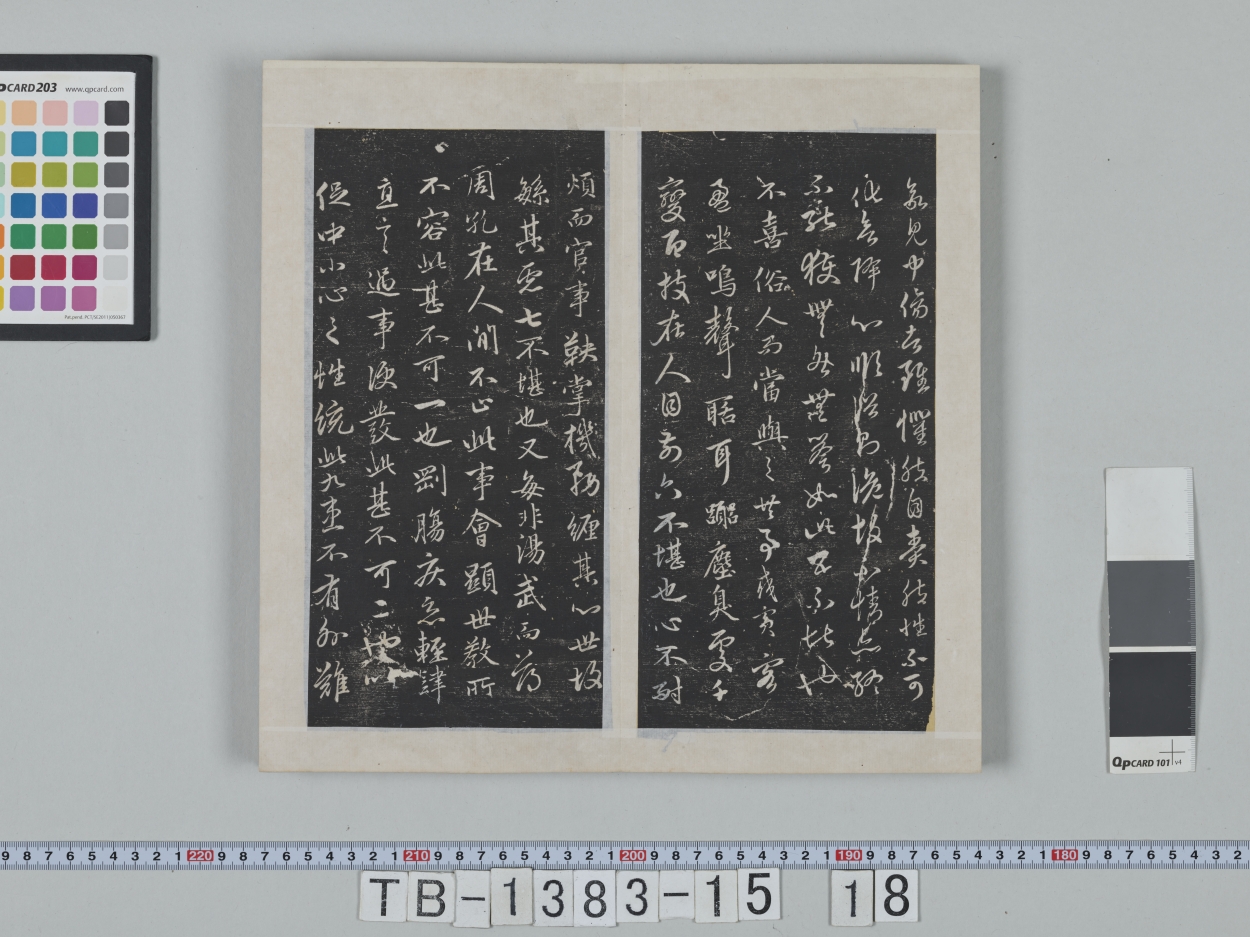 欲見中傷者雖懼然自責然性不可
化欲降心順俗則詭故不情亦終
不能獲無咎無譽如此五不堪也
不喜俗人而當與之共事或賓客
盈坐鳴聲聒耳囂塵臭處千
變百技在人目前六不堪也心不耐
煩而官事鞅掌機務纏其心世故
繁其慮七不堪也又每非湯武而薄
周孔在人間不止此事會顯世教所
不容此甚不可一也剛腸疾惡輕肆
直言遇事便發此甚不可二也以
促中小心之性統此九患不有外難
CARD 203 www.qpcard.com
QpCARD 101 v4
9 8 7 6 5 4 3 2 1 220 9 8 7 6 5 4 3 2 1 210 9 8 7 6 5 4 3 2 1 200 9 8 7 6 5 4 3 2 1 190 9 8 7 6 5 4 3 2 1 180 9 8 7 6 5 4 3 2
TB-1383-15 18